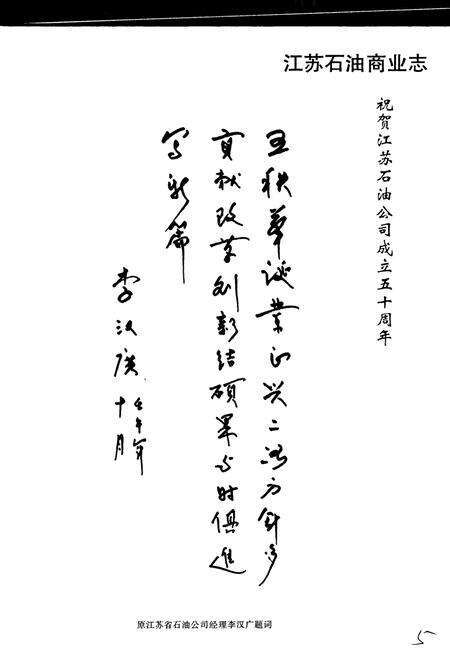 江苏石油商业志
祝贺江苏石油公司成立五十周年
五秩華诞業正兴二方针多
貢献改革创新结硕果与时俱進
写新篇
李汉廣
壬午年
十月
原江苏省石油公司经理李汉广题词
5